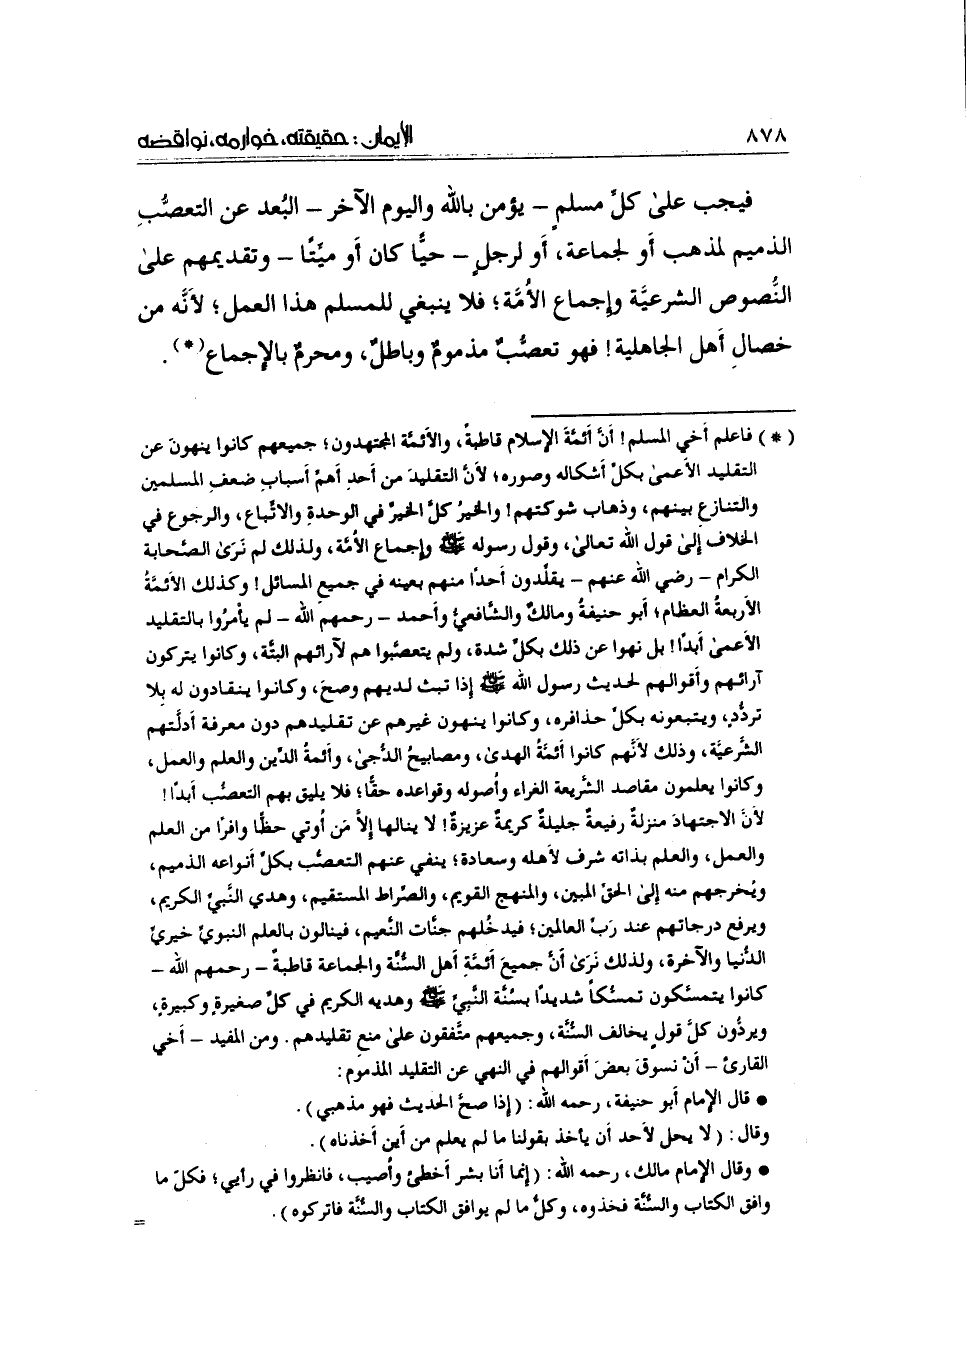 ٨٧٨
الإيمان: حقيقته، خوارمه، نواقضه
فيجب على كلِّ مسلمٍ – يؤمن بالله واليوم الآخر – البُعد عن التعصُّبِ
الذميم لمذهب أو لجماعة، أو لرجلٍ – حيًّا كان أو ميِّتًا – وتقديمهم على
النُّصوص الشرعيَّة وإجماع الأُمَّة؛ فلا ينبغي للمسلم هذا العمل؛ لأنَّه من
خصالِ أهل الجاهلية! فهو تعصُّبٌ مذمومٌ وباطلٌ، ومحرمٌ بالإجماع(*).
(*) فاعلم أخي المسلم! أنَّ أئمةَ الإسلام قاطبةً، والأئمَّة المجتهدون؛ جميعهم كانوا ينهونَ عن
التقليد الأعمى بكلِّ أشكاله وصوره؛ لأنَّ التقليدَ من أحدِ أهمِّ أسبابِ ضعفِ المسلمين
والتنازعِ بينهم، وذهاب شوكتهم! والخيرُ كلَّ الخيرِ في الوحدةِ والاتِّباع، والرجوع في
الخلاف إلى قول الله تعالى، وقول رسوله ﷺ وإجماع الأمَّة، ولذلك لم نَرَى الصَّحابة
الكرام – رضي الله عنهم – يقلِّدون أحدًا منهم بعينه في جميع المسائل! وكذلك الأئمَّةُ
الأربعةُ العظام؛ أبو حنيفةُ ومالكٌ والشَّافعيُّ وأحمد – رحمهم الله – لم يأمرُوا بالتقليد
الأعمى أبدًا! بل نهوا عن ذلك بكلِّ شدة، ولم يتعصَّبوا هم لآرائهم البتَّة، وكانوا يتركون
آرائهم وأقوالهم لحديث رسول الله ﷺ إذا ثبت لديهم وصحَّ، وكانوا ينقادون له بلا
تردُّدٍ، ويتبعونه بكلِّ حذافره، وكانوا ينهون غيرهم عن تقليدهم دون معرفة أدلَّتهم
الشَّرعيَّة، وذلك لأنَّهم كانوا أئمَّةُ الهدى، ومصابيحُ الدُّجى، وأئمةُ الدِّين والعلم والعمل،
وكانوا يعلمون مقاصد الشَّريعة الغراء وأُصوله وقواعده حقًّا؛ فلا يليق بهم التعصُّب أبدًا!
لأنَّ الاجتهادَ منزلةٌ رفيعةٌ جليلةٌ كريمةٌ عزيزةٌ! لا ينالها إلاَّ مَن أُوتي حظًّا وافرًا من العلم
والعمل، والعلم بذاته شرف لأهله وسعادة؛ ينفي عنهم التعصُّب بكلِّ أنواعه الذميم،
ويُخرجهم منه إلى الحقِّ المبين، والمنهج القويم، والصِّراط المستقيم، وهدي النَّبيِّ الكريم،
ويرفع درجاتهم عند رَبِّ العالمين؛ فيدخُلهم جنَّات النَّعيم، فينالون بالعلم النبويِّ خيريِّ
الدُّنيا والآخرة، ولذلك نَرَى أنَّ جميعَ أئمَّةِ أهل السُّنَّة والجماعة قاطبةً – رحمهم الله –
كانوا يتمسَّكون تمسُّكاً شديدًا بسُنَّة النَّبيِّ ﷺ وهديه الكريم في كلِّ صغيرةٍ وكبيرةٍ،
ويردُّون كلَّ قولٍ يخالف السُّنَّة، وجميعهم متَّفقون على منعِ تقليدهم. ومن المفيد – أخي
القارئ – أنْ نسوقَ بعضَ أقوالهم في النهي عن التقليد المذموم:
● قال الإمام أبو حنيفة، رحمه الله: (إذا صحَّ الحديث فهو مذهبي).
وقال: (لا يحل لأحد أن يأخذ بقولنا ما لم يعلم من أين أخذناه).
● وقال الإمام مالك، رحمه الله: (إنما أنا بشر أخطئ وأُصيب، فانظروا في رأيي؛ فكلّ ما
وافق الكتاب والسُّنَّة فخذوه، وكلُّ ما لم يوافق الكتاب والسُّنَّة فاتركوه).
=